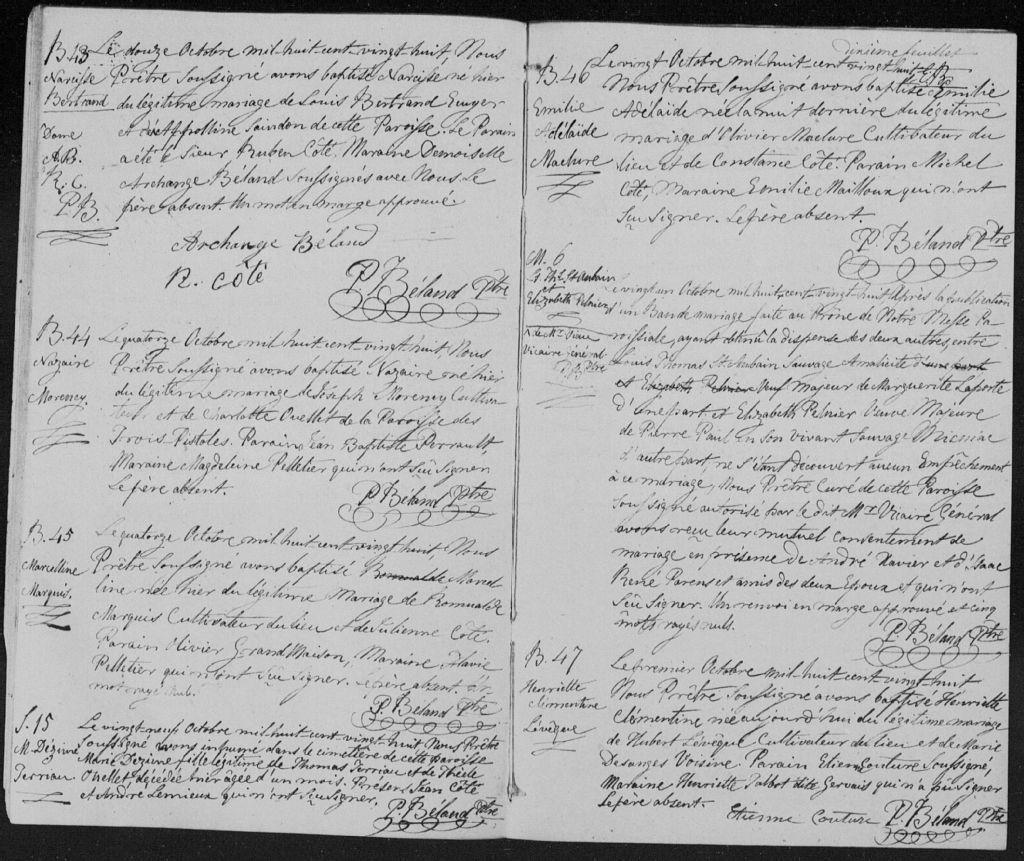 B.43
Narcisse
Bertrand
Dame
A.B.
R.C.
P.B.
Le douze Octobre mil huit cent vingt huit, Nous
Prêtre Soussigné avons baptisé Narcisse né hier
du légitime mariage de Louis Bertrand Ecuyer
et d'Appolline Saindon de cette Paroisse. Le Parain
a été le Sieur Ruben Côté, Maraine Demoiselle
Archange Béland Soussignés avec Nous. Le
père absent. Un mot en marge approuvé.
Archange Béland
R. Côté
P. Béland Ptre
B.44
Nazaire
Morency
Le quatorze Octobre mil huit cent vingt huit, Nous
Prêtre Soussigné avons baptisé Nazaire né hier
du légitime mariage de Joseph Morency Cultiva
teur et de Charlotte Ouellet de la Paroisse des
Trois Pistoles. Parain Jean Baptiste Perrault,
Maraine Magdeleine Pelletier qui n'ont sû signer
Le père absent.
P. Béland Ptre
B.45
Marcelline
Marquis
Le quatorze Octobre mil huit cent vingt huit Nous
Prêtre Soussigné avons baptisé Romualde Marcel
line née hier du légitime Mariage de Romualde
Marquis Cultivateur du lieu et de Julienne Côté.
Parain Olivier Grand Maison, Maraine Flavie
Pelletier qui n'ont Sû Signer. Le père absent. Un
mot rayé nul.
P. Béland Ptre
S.15
M. Dézime
Terriau
Le vingt neuf Octobre mil huit cent vingt huit Nous Prêtre
Soussigné avons inhumé dans le cimetière de cette Paroisse
Marie Dezime fille légitime de Thomas Terriau et de Thècle
Ouellet décédée hier âgée d'un mois. Présens Jean Côté
et André Lemieux qui n'ont Sû Signer.
P. Béland Ptre
dixième feuillet
B.46
Emilie
Adélaïde
Maclure
Le vingt Octobre mil huit cent vingt huit
Nous Prêtre Soussigné avons baptisé Emilie
Adélaïde née la nuit dernière du légitime
mariage d'Olivier Maclure Cultivateur du
lieu et de Constance Côté. Parain Michel
Côté, Maraine Emilie Mailloux qui n'ont
Sû Signer. Le père absent.
P. Béland Ptre
M. 6
L. Th. St Aubain
et
Elizabeth Pelnier
x de Mr. Viau
Vicaire Général
P.B. Ptre
Le vingt un Octobre mil huit cent vingt huit Après la publication
d'un Ban de mariage faite au Prône de Nôtre Messe Pa
roissiale, ayant obtenu la dispense des deux autres, entre
Louis Thomas St Aubain Sauvage Amalicite d'une part
et Elizabeth Pelnier Veuf majeur de Marguerite Laporte
d'une part et Elizabeth Pelnier Veuve Majeure
de Pierre Paul en son vivant Sauvage Micmac
d'autre part, ne s'étant découvert aucun Empêchement
à ce mariage, Nous Prêtre Curé de cette Paroisse
soussigné autorisé par le dit Mr. Vicaire Général
avons reçu leur mutuel consentement de
mariage en présence de André Xavier et d'Isaac
René Parens et amis des deux Epoux et qui n'ont
Sû Signer. Un renvoi en marge approuvé et cinq
mots rayés nuls.
P. Béland Ptre
B.47
Henriette
Clémentine
Lévêque
Le premier Octobre mil huit cent vingt huit
Nous Prêtre Soussigné avons baptisé Henriette
Clémentine née aujourd'hui du légitime mariage
de Hubert Lévêque Cultivateur du lieu et de Marie
Desanges Voisine. Parain Etienne Couture Soussigné,
Maraine Henriette Talbot dite Gervais qui n'a pu Signer
Le père absent.
Etienne Couture
P. Béland Ptre